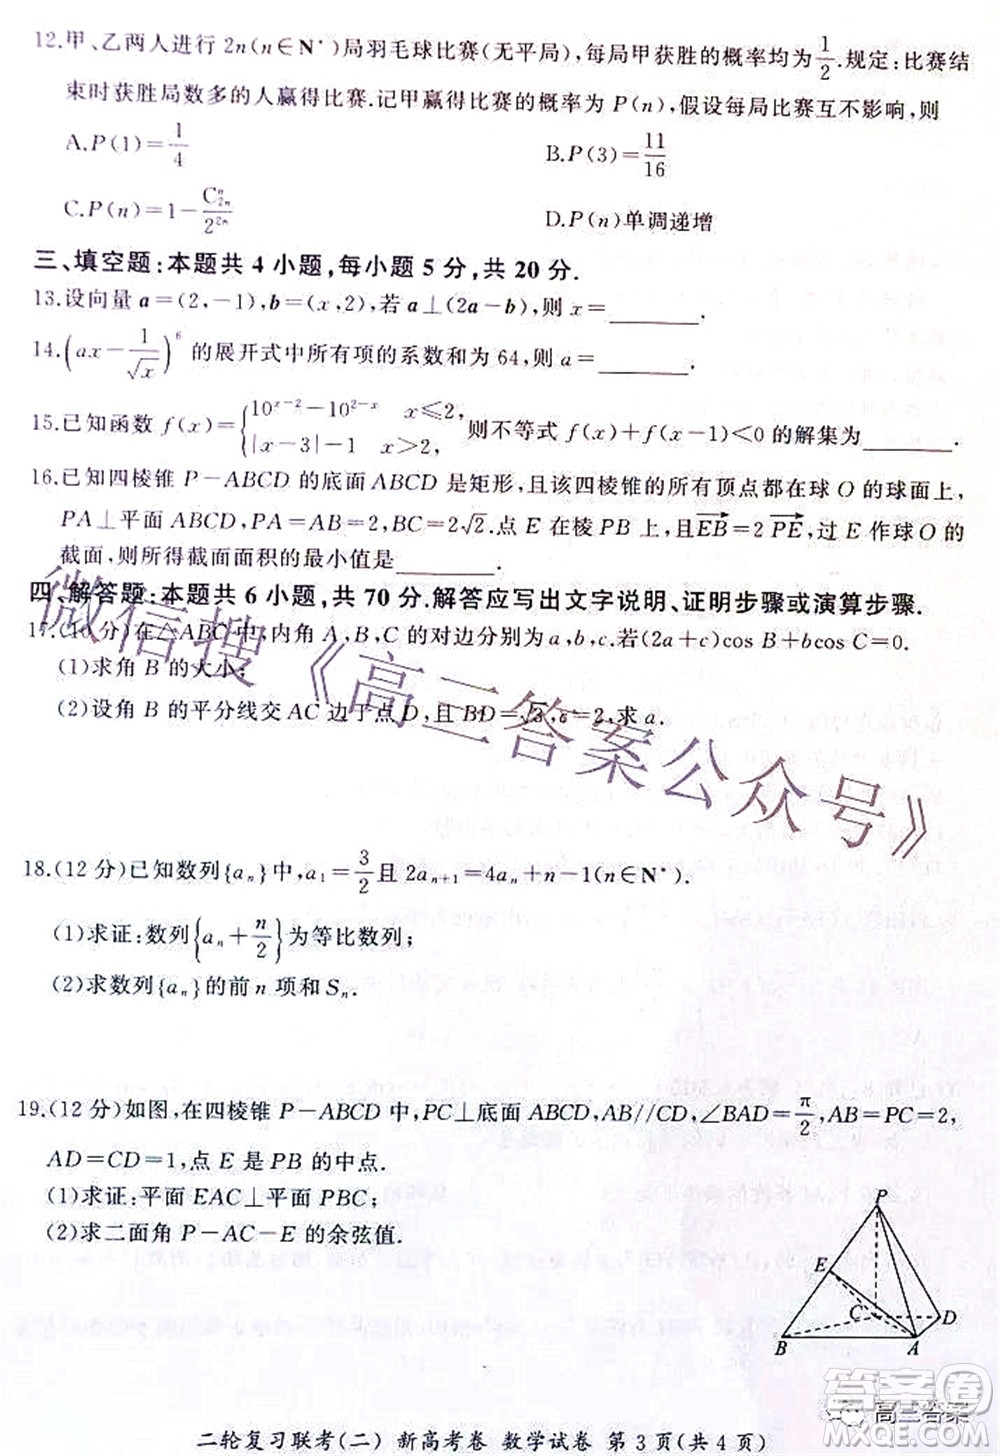 12.甲、乙两人进行 2n(n∈N*)局羽毛球比赛(无平局),每局甲获胜的概率均为 1/2.规定:比赛结
束时获胜局数多的人赢得比赛.记甲赢得比赛的概率为 P(n),假设每局比赛互不影响,则
A.P(1)=1/4  B.P(3)=11/16
C.P(n)=1-C_{2n}^{n}/2^{2n}  D.P(n)单调递增
三、填空题:本题共 4 小题,每小题 5 分,共 20 分.
13.设向量 a=(2,-1),b=(x,2),若 a⊥(2a-b),则 x=______.
14.(ax-1/√x)^6 的展开式中所有项的系数和为 64,则 a=______.
15.已知函数 f(x)={10^{x-2}-10^{2-x}  x≤2, |x-3|-1  x>2, 则不等式 f(x)+f(x-1)<0 的解集为______.
16.已知四棱锥 P-ABCD 的底面 ABCD 是矩形,且该四棱锥的所有顶点都在球 O 的球面上,
PA⊥平面 ABCD,PA=AB=2,BC=2√2.点 E 在棱 PB 上,且EB=2 PE,过 E 作球 O 的
截面,则所得截面面积的最小值是______.
四、解答题:本题共 6 小题,共 70 分.解答应写出文字说明、证明步骤或演算步骤.
17.(10 分)在△ABC 中,内角 A,B,C 的对边分别为 a,b,c.若(2a+c)cos B+bcos C=0.
(1)求角 B 的大小;
(2)设角 B 的平分线交 AC 边于点 D,且 BD=√3,c=2,求 a.
微信搜《高三答案公众号》
18.(12 分)已知数列{aₙ}中,a₁=3/2且 2aₙ₊₁=4aₙ+n-1(n∈N*).
(1)求证:数列{aₙ+n/2}为等比数列;
(2)求数列{aₙ}的前 n 项和 Sₙ.
19.(12 分)如图,在四棱锥 P-ABCD 中,PC⊥底面 ABCD,AB//CD,∠BAD=π/2,AB=PC=2,
AD=CD=1,点 E 是 PB 的中点.
(1)求证:平面 EAC⊥平面 PBC;
(2)求二面角 P-AC-E 的余弦值.
P
E
C
D
B
A
二轮复习联考(二) 新高考卷 数学试卷 第 3 页(共 4 页)
高三答案
答案圈
MXQE.COM